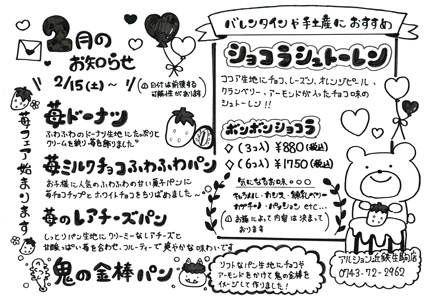 2月の
お知らせ
2/15(土)〜
①日付は前後する
可能性があります
苺フェア始まります
苺ドーナツ
ふわふわのドーナツ生地にたっぷりと
クリームを絞り苺を飾りました
苺ミルクチョコふわふわパン
お子様に人気のふわふわの甘い菓子パンに
苺チョコチップとホワイトチョコをちりばめました〜
苺のレアチーズパン
しっとりパン生地にクリーミーなレアチーズと
甘酸っぱい苺を合わせ、フルーティーで爽やかな味わいです
鬼の金棒パン
ソフトなパン生地にチョコや
アーモンドをかけて鬼の金棒を
イメージして作りました!
バレンタインや手土産におすすめ
ショコラシュトーレン
ココア生地にチョコ、レーズン、オレンジピール、
クランベリー、アーモンドが入ったチョコ味の
シュトーレン!!
ボンボンショコラ
(3コ入) ¥880(税込)
(6コ入) ¥1750(税込)
気になるお味。。。
キャラメル・カシス・
カプチーノ・パッション etc…
お店によって内容は決まって
おります
アルション近鉄生駒店
0743-72-2962